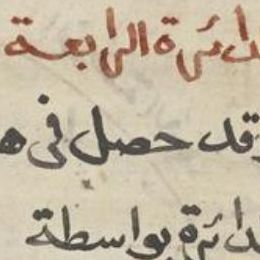 دائرة الرابعة
وقد حصل فى ه
دائرة بواسطة